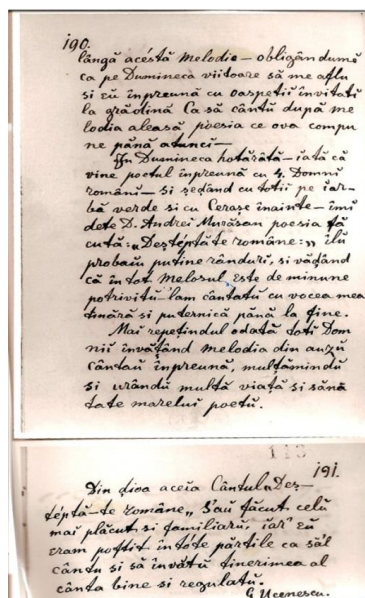 190.
lângă acéstă melodie – obligândumĕ
ca pe Dumineca viitoare să me aflu
si eŭ înpreună cu oaspeții învitați
la grădină Ca să cântu după me
lodia aleasă poesia ce ova compu
ne până atunci –
În Dumineca hotărâtă – iată că
vine poetul înpreună cu 4. Domni
români – si șeḑând cu totii pe iar-
bă verde si cu Cerașe înainte – îmi
dete D. Andrei Murăsan poesia fă
cută: „Deștéptăte române:„ îlŭ
probaiu puține rânduri, si văḑând
că în tot Melosul, Este de minune
potrivitŭ – lam cântatu cu vocea mea
tinără si puternică până la fine.
Mai repețindul odată toți Dom
nii învățând melodia din auzŭ
cântau înpreună, mulțămindŭ
si urândŭ multă viață si sănă
tate marelui poetŭ.
113
191.
Din ḑioa aceia Cântulu „Deș–
téptă–te române„ Sau făcut celŭ
mai plăcut si familiarŭ, iar' eŭ
eram poftit in tóte părtile ca săl
cântu si să învătŭ tinerimea al
cânta bine si regulatŭ.
G. Ucenescu.